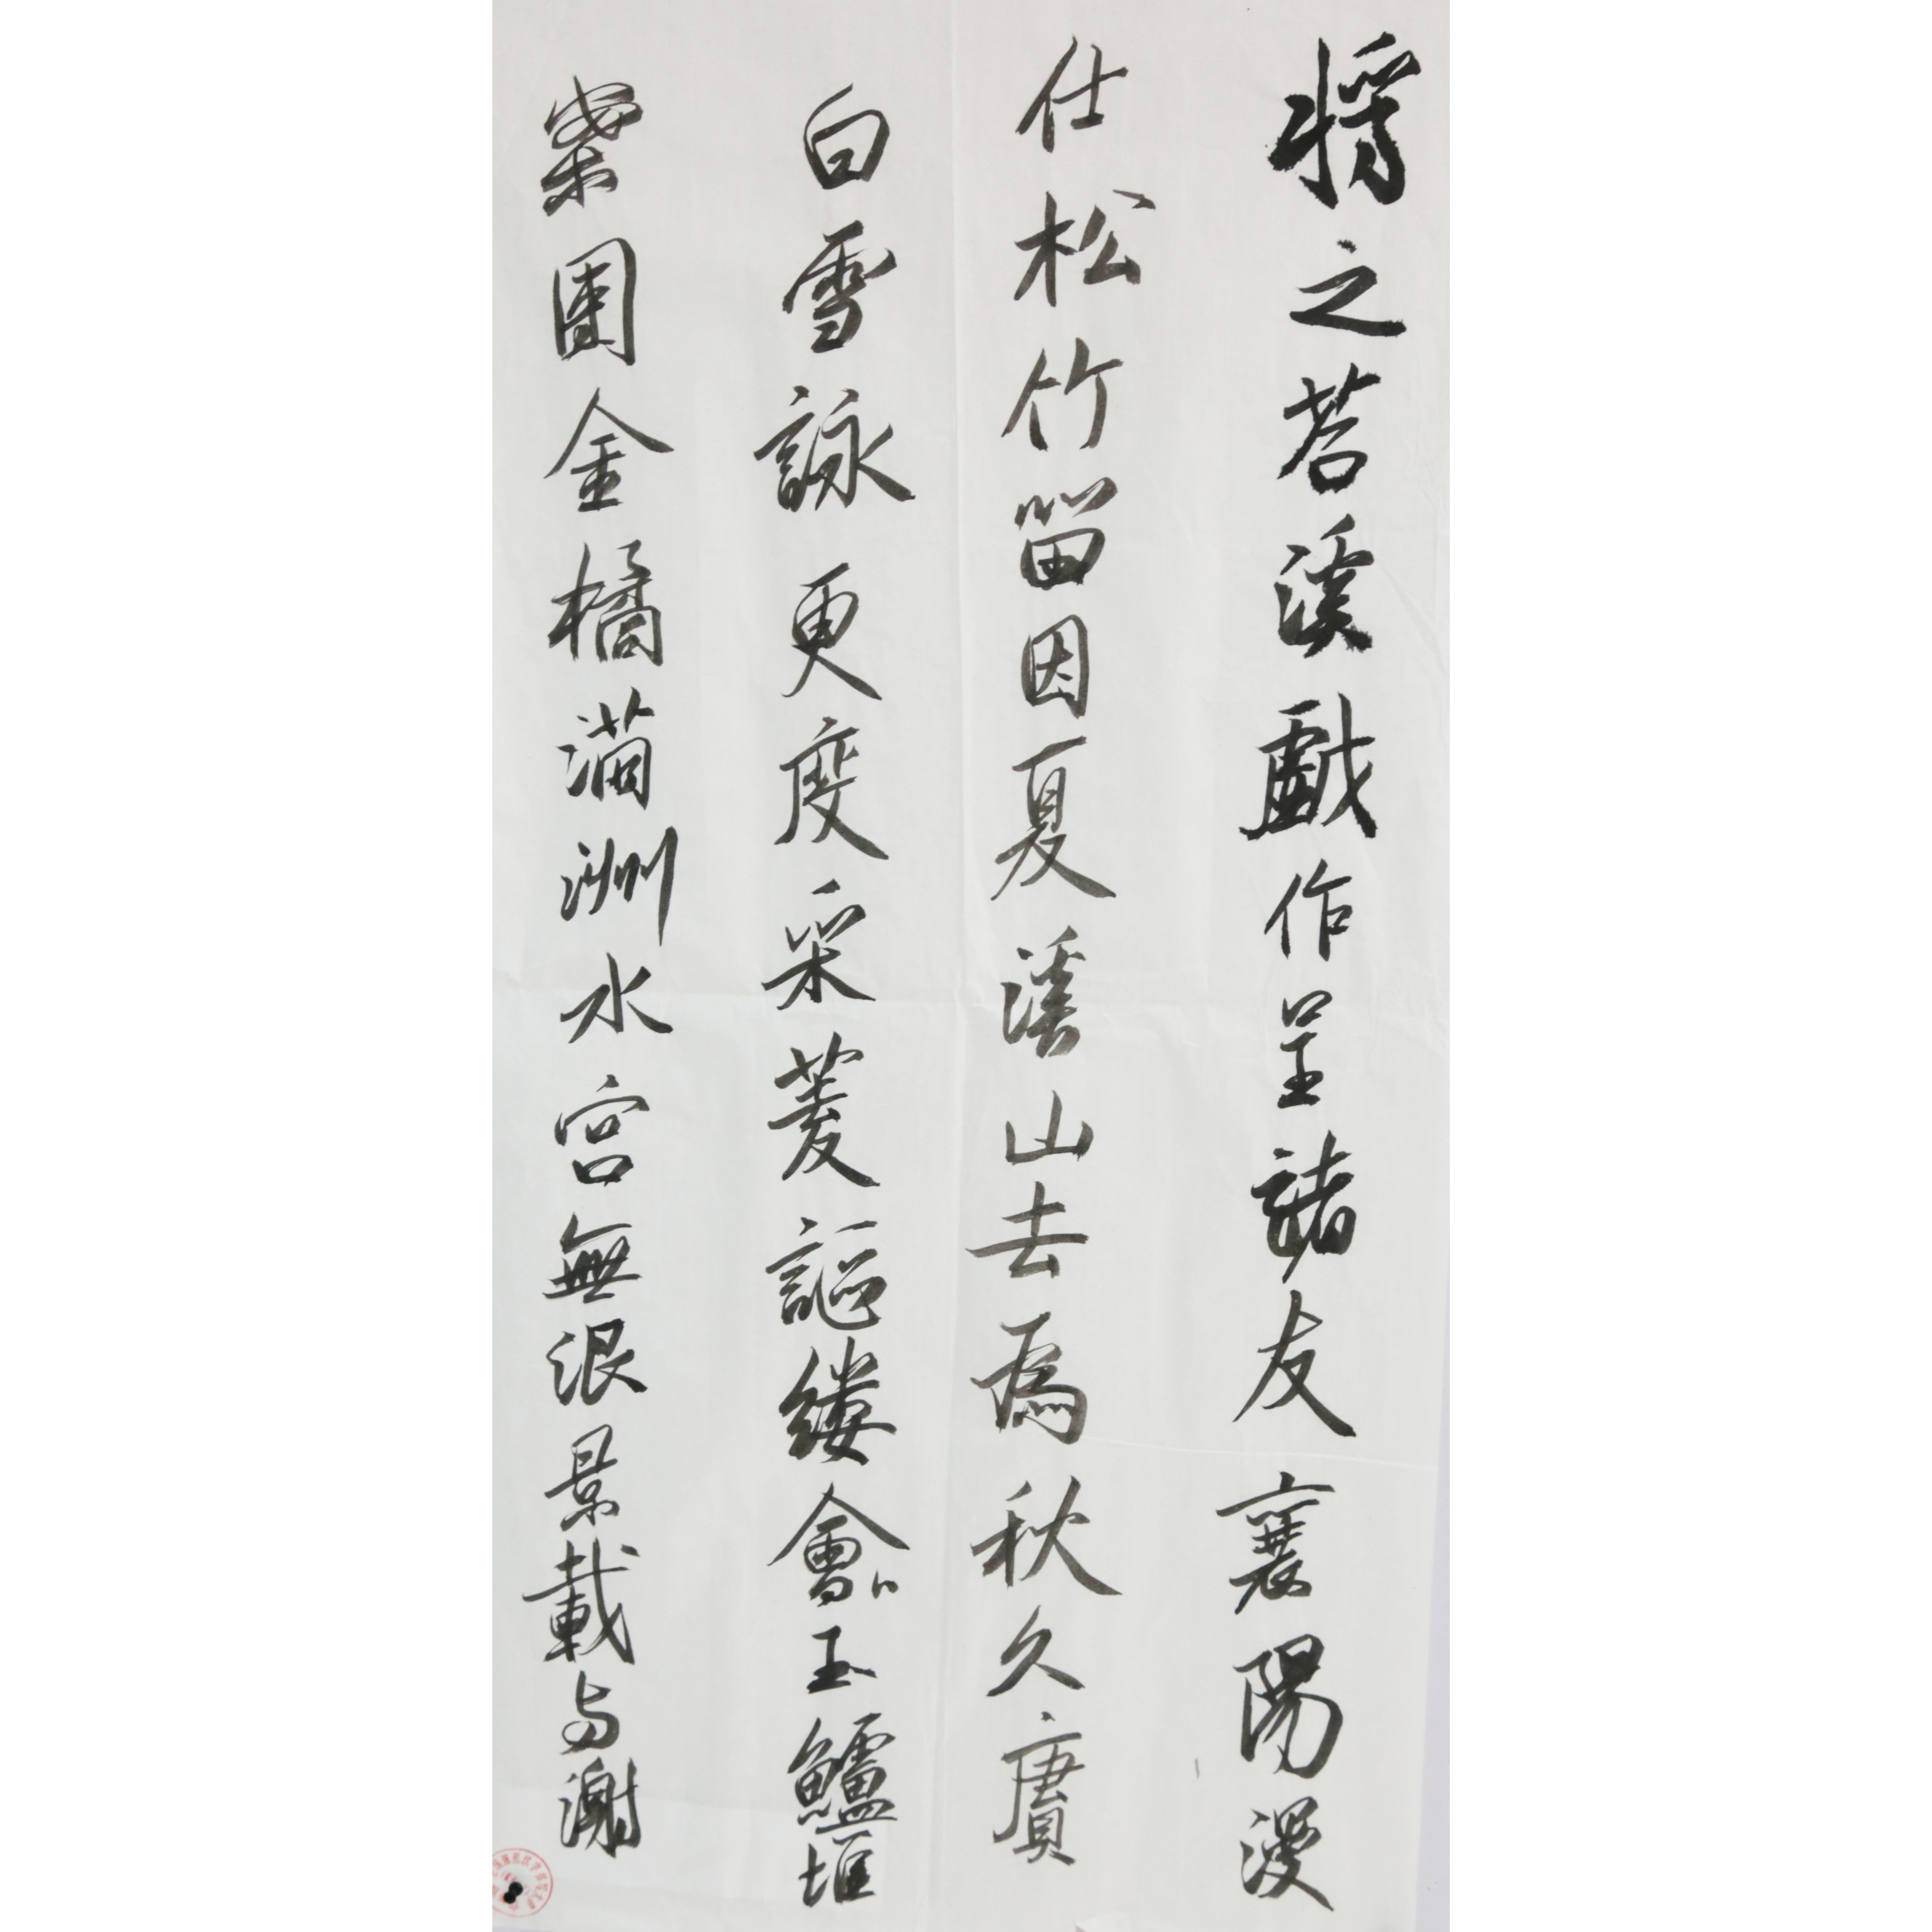 將之苕溪戲作呈諸友襄陽漫
仕松竹留因夏溪山去為秋久賡
白雪詠更度采菱謳縷會玉鱸堆
案團金橘滿洲水宮無限景載与謝